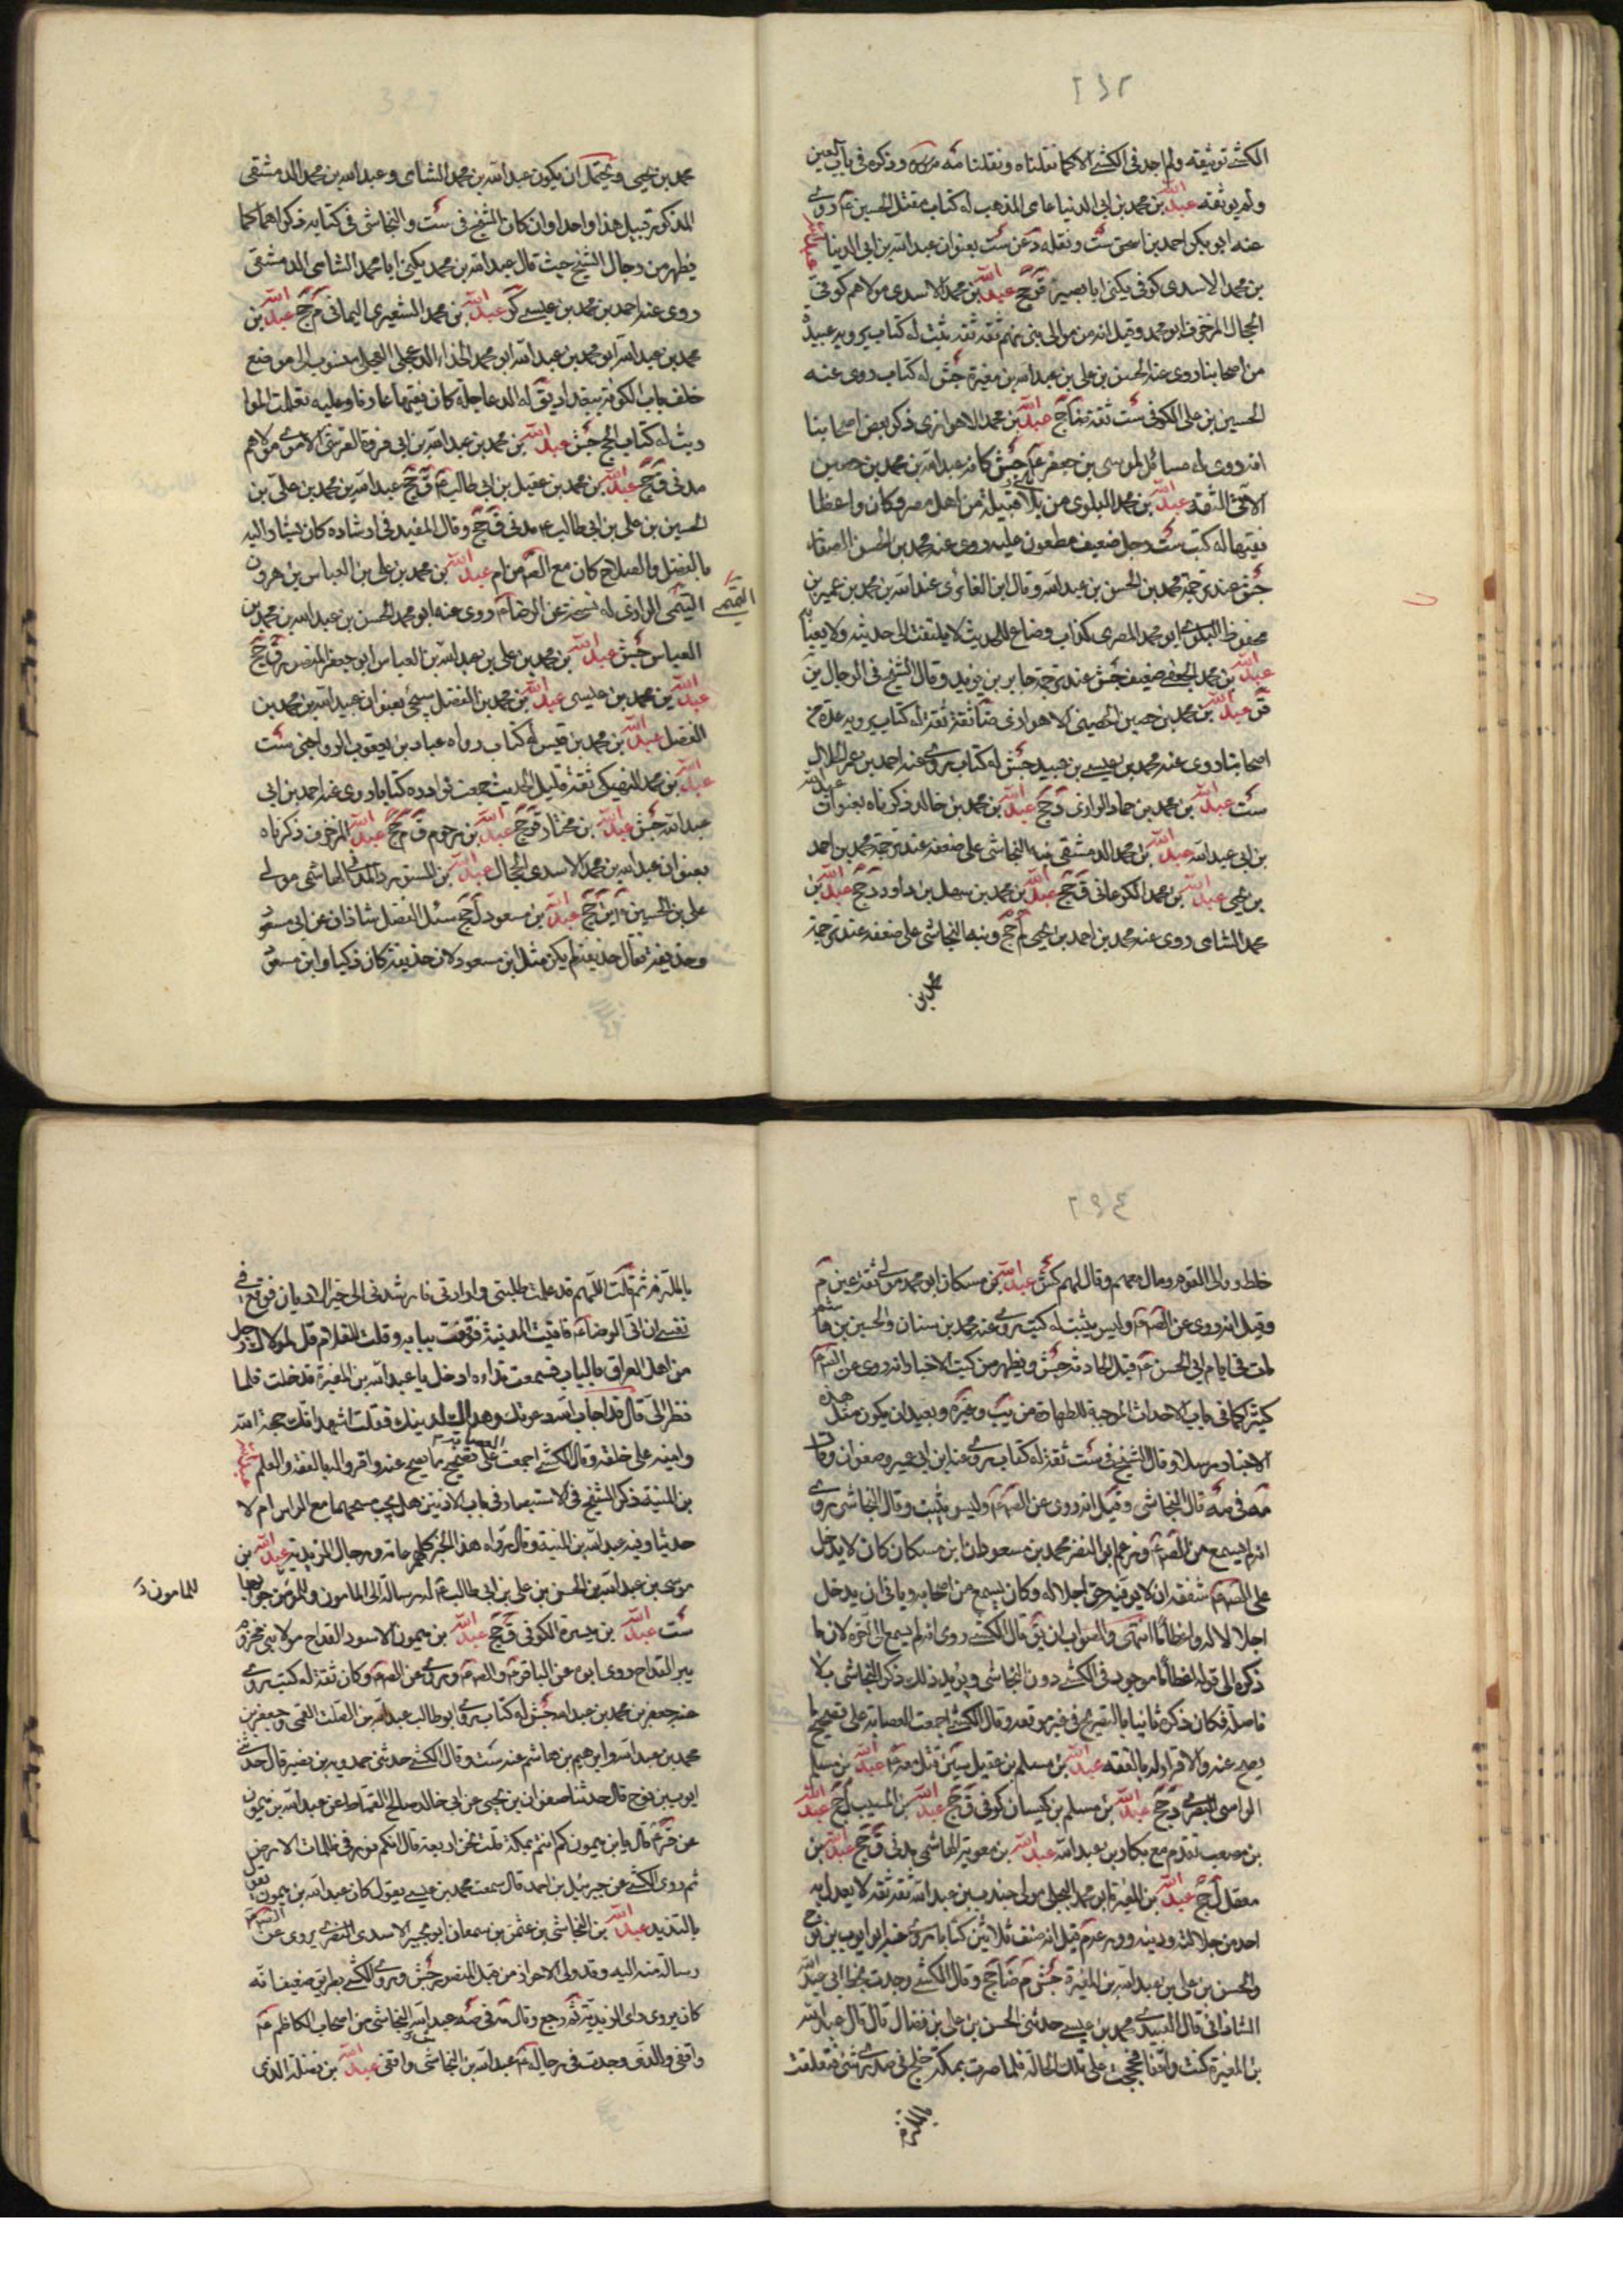 ٢٩٢
الكشي توثيقه ولم اجد في الكشي الا كما نقلناه ونقلنا منه وذكره في باب العين
ولم يوثقه عبدالله بن محمد بن ابي الدنيا عامي المذهب له كتاب مقتل الحسين ع روى
عنه ابو بكر احمد بن اسحق ست ونقله د عن ست بعنوان عبدالله بن ابي الدنيا عبدالله
بن محمد الاسدي كوفي يكنى ابا بصير ق جخ عبدالله بن محمد الاسدي مولاهم كوفي
الحجال المزخرف ابو محمد وقيل انه من موالي بني تيم ثقة ثقة ثبت له كتاب يرويه عدة
من اصحابنا روى عنه الحسن بن علي بن عبدالله بن مغيرة جش له كتاب روى عنه
الحسين بن علي الكوفي ست ثقة ضا جخ عبدالله بن محمد الاهوازي ذكر بعض اصحابنا
انه روى له مسائل لموسى بن جعفر ع جش كانه عبدالله بن محمد بن حصين
الآتي الثقة عبدالله بن محمد البلوي من بلي قبيلة من اهل مصر وكان واعظا
فقيها له كتب ست رجل ضعيف مطعون عليه روى عنه محمد بن الحسن
جش عند ترجمة محمد بن الحسن بن عبدالله وقال ابن الغضائري عبدالله بن محمد بن عمير بن
محفوظ البلوي ابو محمد المصري كذاب وضاع للحديث لا يلتفت الى حديثه ولا يعبأ به
عبدالله بن محمد الجعفي ضعيف جش عند ترجمة جابر بن يزيد وقال الشيخ في الرجال ين
قر عبدالله بن محمد بن حصين الحصيني الاهوازي ضا ثقة ثقة له كتاب يرويه عدة من
اصحابنا روى عنه محمد بن عيسى بن عبيد جش له كتاب روى عنه احمد بن عمر الحلال
ست عبدالله بن محمد بن حماد الرازي دي جخ عبدالله بن محمد بن خالد ذكرناه بعنوان عبدالله
بن ابي عبدالله عبدالله بن محمد الدمشقي نبه النجاشي على ضعفه عند ترجمة محمد بن احمد
بن يحيى عبدالله بن محمد الكرماني ق جخ عبدالله بن محمد بن سهل بن داود د جخ عبدالله بن
محمد الشامي روى عنه محمد بن احمد بن يحيى لم جخ ونبه النجاشي على ضعفه عند ترجمة
محمد بن
محمد بن يحيى ويحتمل ان يكون عبدالله بن محمد الشامي وعبدالله بن محمد الدمشقي
المذكور قبيل هذا واحدا وان كان الشيخ في ست والنجاشي في كتابه ذكراهما كما
يظهر من رجال الشيخ حيث قال عبدالله بن محمد يكنى ابا محمد الشامي الدمشقي
روى عنه احمد بن محمد بن عيسى كر عبدالله بن محمد الشعيري اليماني م جخ عبدالله بن
محمد بن عبدالله ابو محمد بن عبدالله ابو محمد الحذاء الدعلجي منسوب الى موضع
خلف باب الكوفة ببغداد يق له الدعاجلة كان فقيها عارفا وعليه تعلمت الموا
ريث له كتاب الحج جش عبدالله بن محمد بن عبدالله بن ابي فروة القرشي الاموي مولاهم
مدني ق جخ عبدالله بن محمد بن عقيل بن ابي طالب ع ق جخ عبدالله بن محمد بن علي بن
الحسين بن علي بن ابي طالب ع مدني ق جخ وقال المفيد في ارشاده كان يشار اليه
بالفضل والصلاح كان مع الصم من ام عبدالله بن محمد بن علي بن العباس بن هرون
التميمي الرازي له نسخة عن الرضا ع روى عنه ابو محمد الحسن بن عبدالله بن محمد بن
التميمي
العباس جش عبدالله بن محمد بن علي بن عبدالله بن العباس ابو جعفر المنصور ق جخ
عبدالله بن محمد بن عيسى عبدالله بن محمد بن الفضل سيجئ بعنوان عبيدالله بن محمد بن
الفضل عبدالله بن محمد بن قيس له كتاب رواه عباد بن يعقوب الرواجني ست
عبدالله بن محمد النهيكي ثقة قليل الحديث جمعت نوادره كتابا روى عنه احمد بن ابي
عبدالله جش عبدالله بن مختار ق جخ عبدالله بن مرحوم ق م جخ عبدالله المزخرف ذكرناه
بعنوان عبدالله بن محمد الاسدي الحجال عبدالله بن المستورد المدني الهاشمي مولى
علي بن الحسين ع ين جخ عبدالله بن مسعود ل جخ سئل الفضل شاذان عن ابي مسعود
وحذيفة فقال حذيفة لم يكن مثل ابن مسعود لان حذيفة كان ركنا وابن مسعود
٢٩٤
خلط ووالى القوم ومال معهم وقال بهم كش عبدالله بن مسكان ابو محمد مولى ثقة عين م
وقيل انه روى عن الصم ع وليس بثبت له كتب روى عنه محمد بن سنان والحسين بن هاشم
مات في ايام ابي الحسن ع قبل الحادثة جش ويظهر من كتب الاخبار انه روى عن الصم
كثيرا كما في باب الاحداث الموجبة للطهارة من يب وغيره وبعيد ان يكون مثل هذه
الاخبار مرسلا وقال الشيخ في ست ثقة له كتاب روى عنه ابن ابي عمير وصفوان وقال
مه في صه قال النجاشي وقيل انه روى عن الصم ع وليس بثبت وقال النجاشي روى
انه لم يسمع من الصم ع وزعم ابو النضر محمد بن مسعود ان ابن مسكان كان لا يدخل
على الصم ع شفقة ان لا يوفيه حق اجلاله وكان يسمع من اصحابه ويابى ان يدخل
اجلالا له واعظاما انتهى والصواب ان يق قال الكشي روى انه لم يسمع الى آخره لان ما
ذكره الى قوله اعظاما موجود في الكشي دون النجاشي ويؤيد ذلك ذكر النجاشي بلا
فاصلة فكان ذكره ثانيا بالتصريح في غير موقعه وقال الكشي اجمعت العصابة على تصحيح ما
يصح عنه والاقرار له بالفقه عبدالله بن مسلم بن عقيل سين قتل معه ع عبدالله بن مسلم
الراسبي البصري د جخ عبدالله بن مسلم بن كيسان كوفي ق جخ عبدالله بن المسيب ل جخ عبدالله
بن مصعب تقدم مع بكار بن عبدالله عبدالله بن معوية الهاشمي مدني ق جخ عبدالله بن
معقل ل جخ عبدالله بن المغيرة ابو محمد البجلي مولى جندب بن عبدالله ثقة ثقة لا يعدل به
احد من جلالته ودينه وورعه م قيل انه صنف ثلاثين كتابا روى عنه ايوب بن نوح
والحسن بن علي بن عبدالله بن المغيرة جش م ضا جخ وقال الكشي وجدت بخط ابي عبدالله
الشاذاني قال العبيدي محمد بن عيسى حدثني الحسن بن علي بن فضال قال قال عبدالله
بن المغيرة كنت واقفا فحججت على تلك الحالة فلما صرت بمكة خلج في صدري شئ فتعلقت
بالملتزم
بالملتزم ثم قلت اللهم قد علمت طلبتي وارادتي فارشدني الى خير الاديان فوقع في
نفسي ان اتي الرضا ع فاتيت المدينة فوقفت ببابه وقلت للغلام قل لمولاك رجل
من اهل العراق بالباب فسمعت نداءه ادخل يا عبدالله بن المغيرة فدخلت فلما
نظر الي قال قد اجاب الله دعوتك وهداك لدينك فقلت اشهد انك حجة الله
وامينه على خلقه وقال الكشي اجمعت العصابة على تصحيح ما يصح عنه واقروا له بالفقه والعلم عبدالله
بن المنبه ذكر الشيخ في الاستبصار في باب الاذنين هل يجب مسحهما مع الراس ام لا
حديثا وفيه عبدالله بن المنبه وقال رواة هذا الخبر كلهم عامة ورجال الزيدية عبدالله بن
موسى بن عبدالله بن الحسن بن علي بن ابي طالب ع له رسالة الى المامون والمؤمن جوابها
للمامون د
ست عبدالله بن ميسرة الكوفي ق جخ عبدالله بن ميمون الاسود القداح مولى بني مخزوم
يبر القداح روى ابوه عن الباقر ع والصم ع وروى عن الصم ع وكان ثقة له كتب روى
عنه جعفر بن محمد بن عبدالله جش له كتاب روى ابو طالب عبدالله بن الصلت القمي وجعفر بن
محمد بن عبدالله وابراهيم بن هاشم عنه ست وقال الكشي حدثني حمدويه بن نصير قال حدثني
ايوب بن نوح قال حدثنا صفوان بن يحيى عن ابي خالد صالح القماط عن عبدالله بن ميمون
عن قر ع قال يا ابن ميمون كم انتم بمكة قلت نحن اربعة قال انكم نور في ظلمات الارض
ثم روى الكشي عن جبرئيل بن احمد قال سمعت محمد بن عيسى يقول كان عبدالله بن ميمون يقول
بالتزيد عبدالله بن النجاشي بن عثيم بن سمعان ابو بجير الاسدي النصري يروي عن الصم ع
رسالة منه اليه وقد ولي الاهواز من قبل المنصور جش وروى الكشي بطريق ضعيف انه
كان يروي راى الزيدية ثم رجع وقال مه في صه عبدالله النجاشي من اصحاب الكاظم ع
واقفي والذي وجدت في رجاله عبدالله بن النجاشي واقفي عبدالله بن نضلة الذي